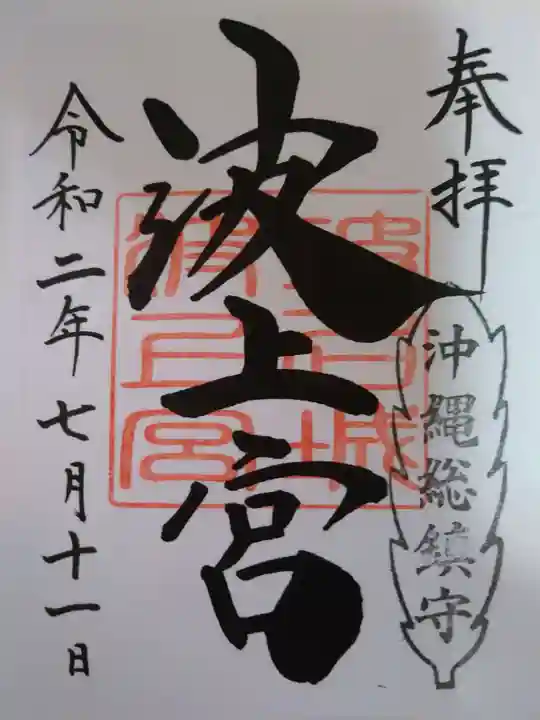 奉拝
沖縄総鎮守
波上宮
令和二年七月十一日